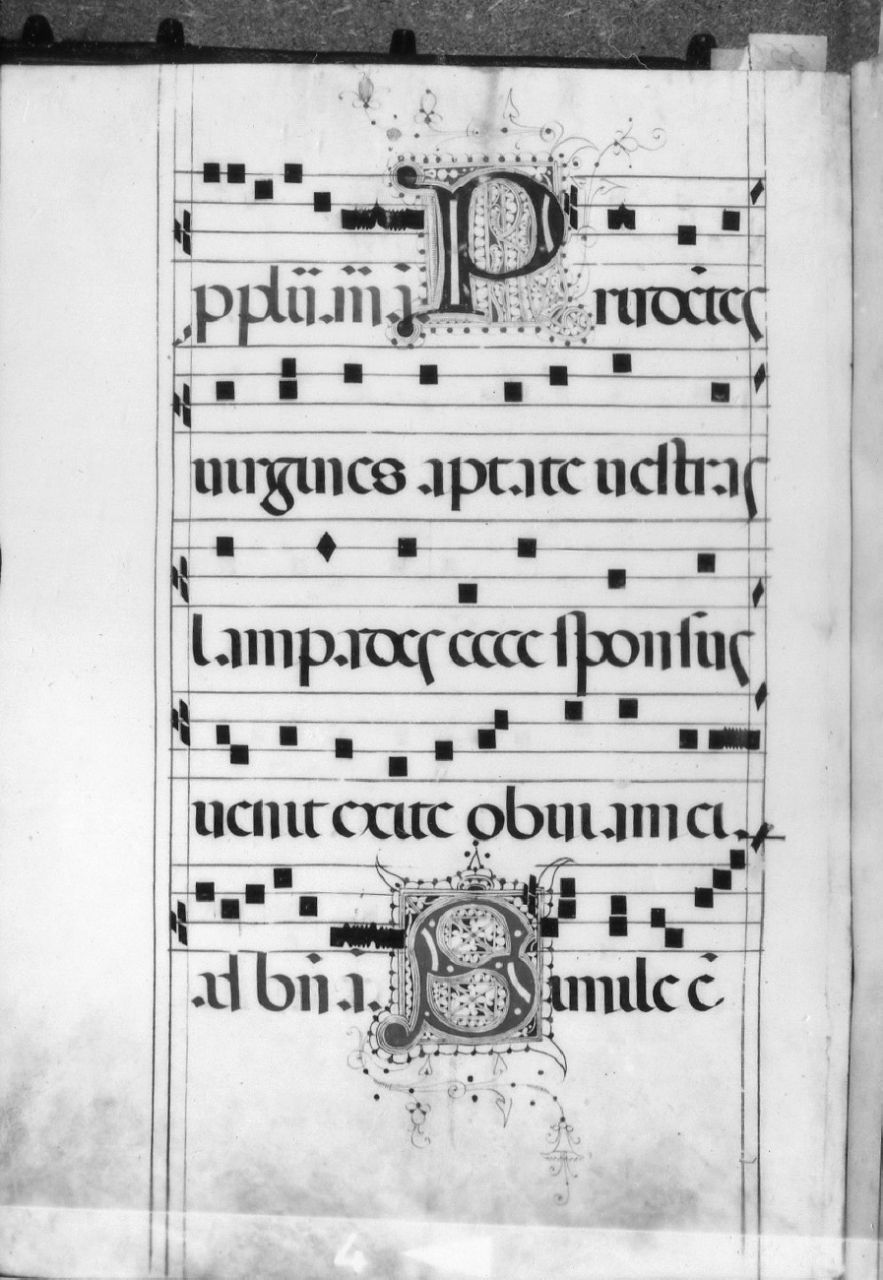 Prudētes
uirgines aptate uestras
lampades ecce sponsus
uenit exite obuiam ei.
ad bn̄ a. Simile ē
4